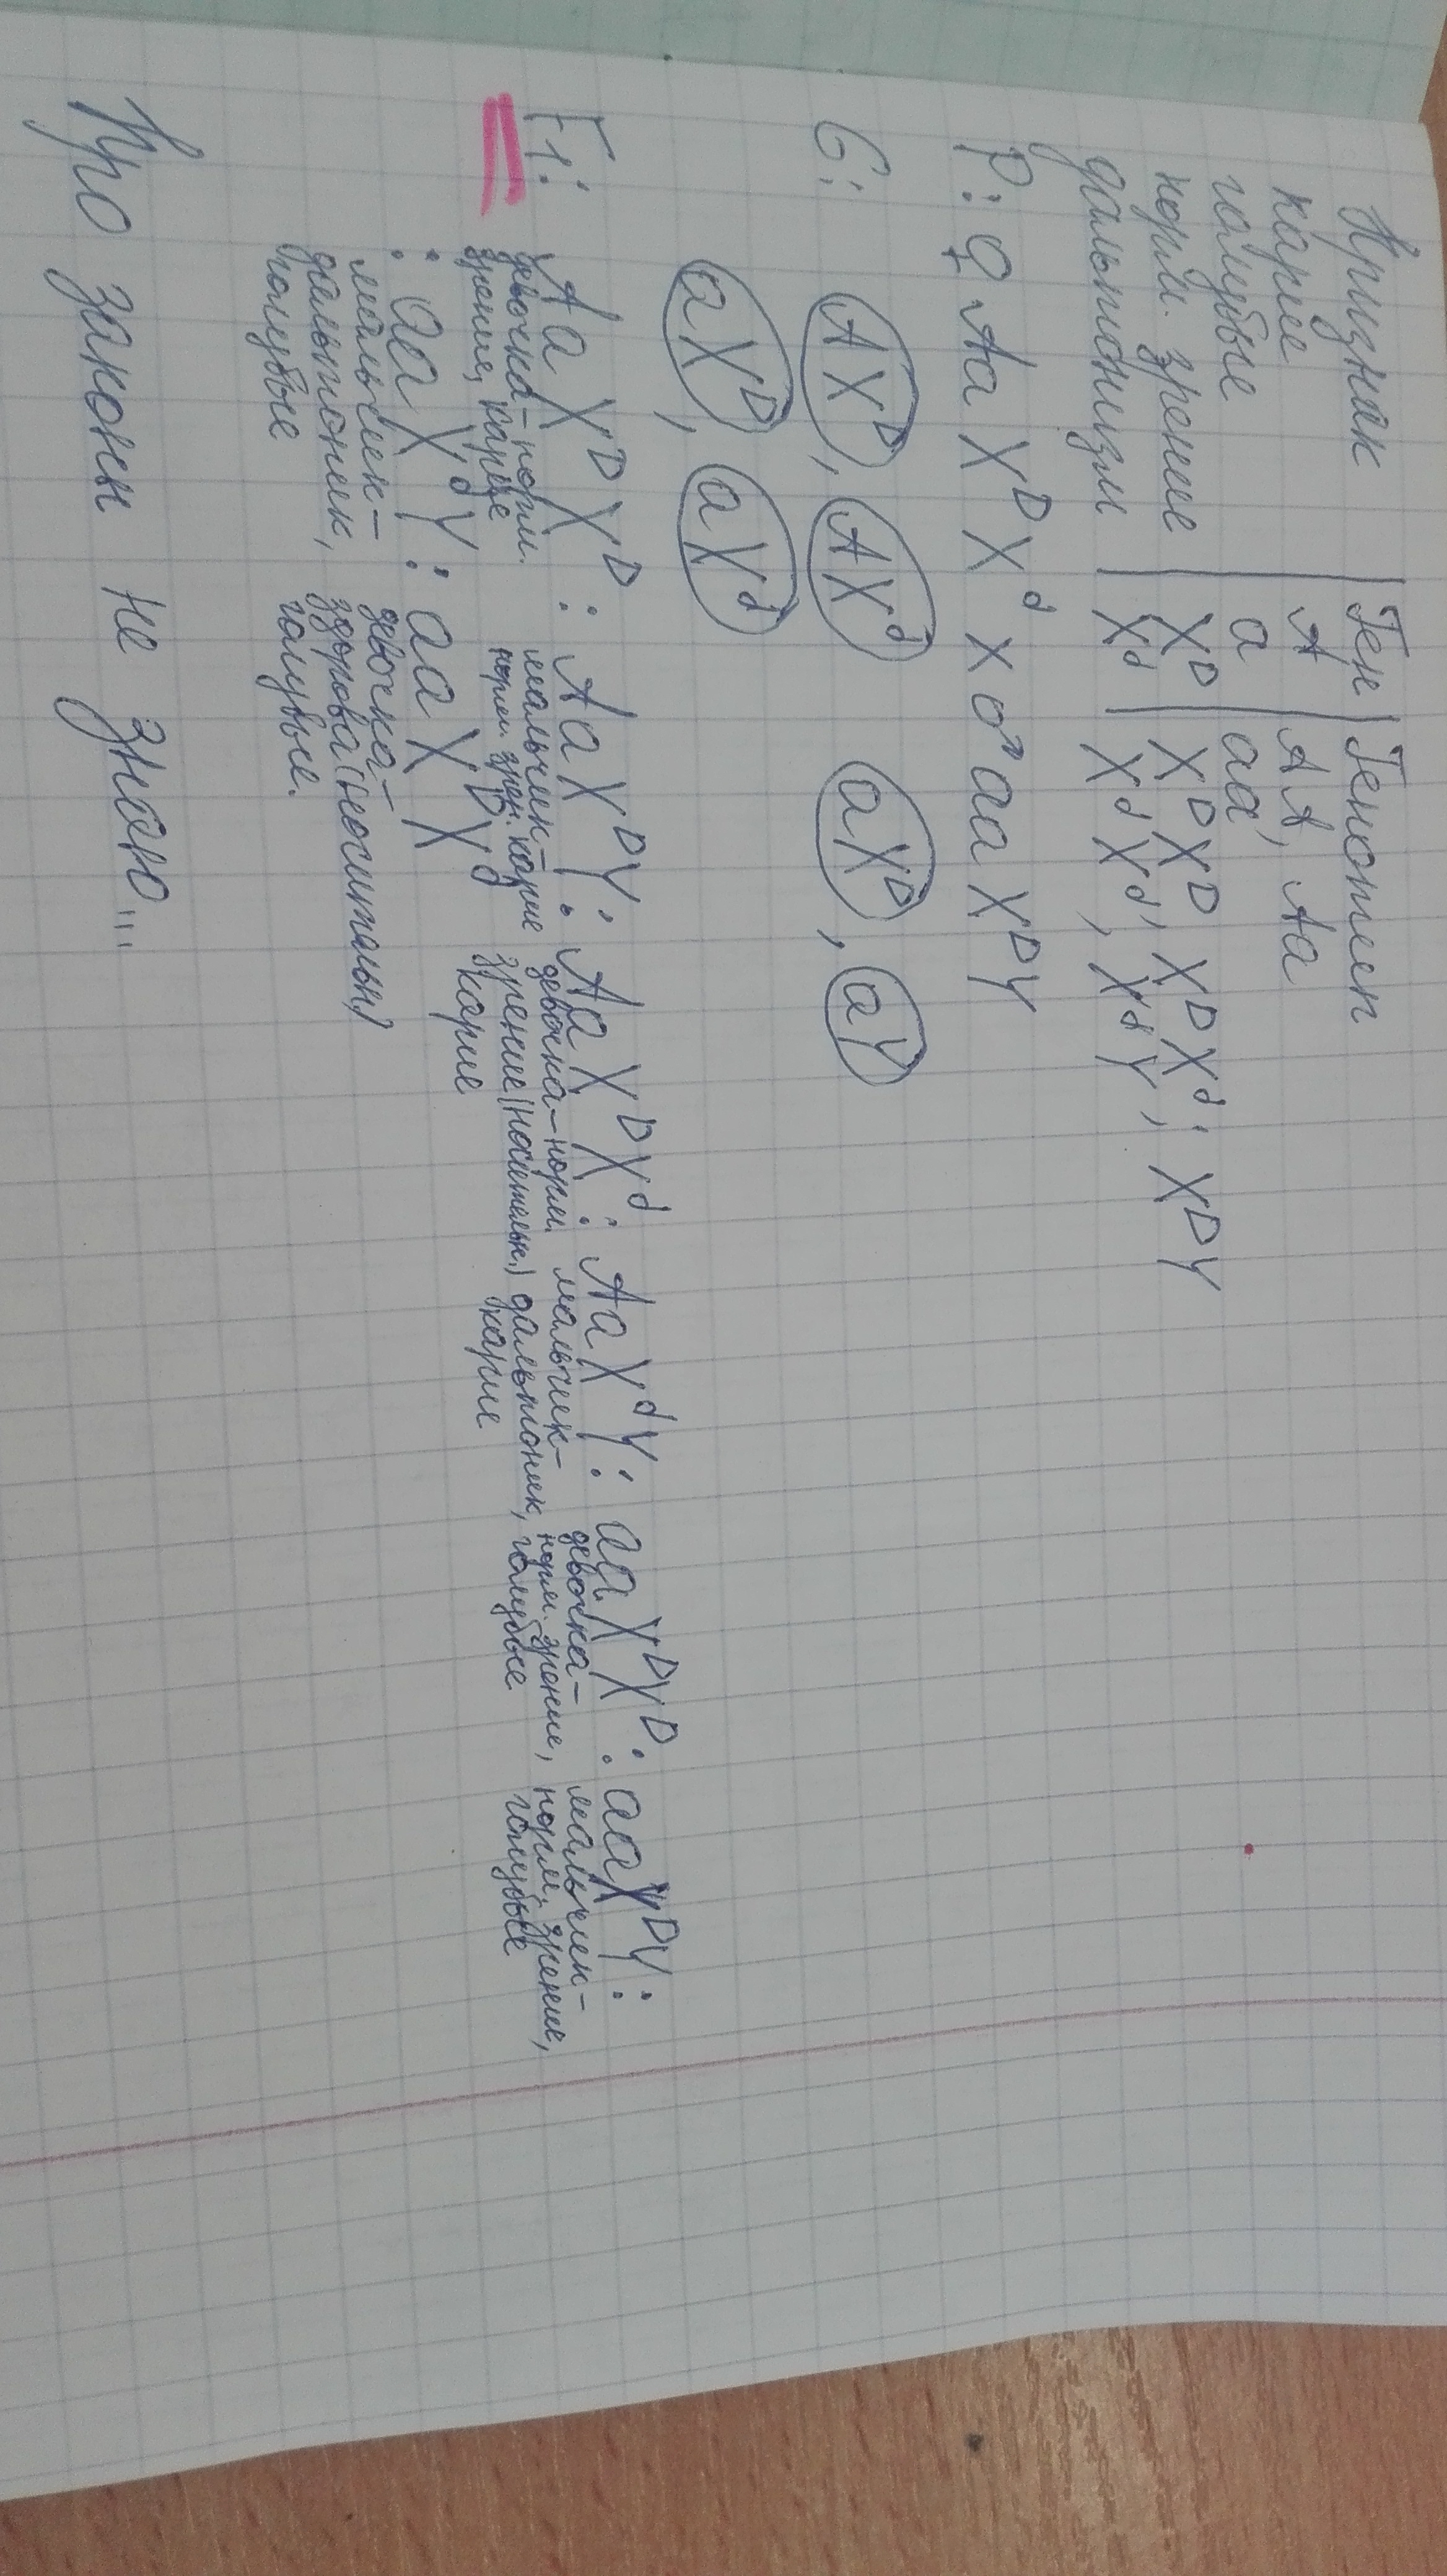 Признак | Ген | Генотип
карие A AA, Aa
голубые a aa
норм. зрение X^D X^D X^D, X^D X^d; X^D Y
дальтонизм X^d X^d X^d, X^d Y,
P: ♀ Aa X^D X^d x ♂ aa X^D Y
G: AX^D, AX^d aX^D, aY
aX^D, aX^d
F1: Aa X^D X^D : Aa X^D Y : Aa X^D X^d : Aa X^d Y : aa X^D X^D : aa X^D Y :
девочка - норм. зрение, карие
мальчик - норм. зрен. карие
девочка - норм. зрение (носительн.) карие
мальчик - дальтоник, карие
девочка - норм. зрение, голубые
мальчик - норм. зрение, голубые
: aa X^d Y : aa X^D X^d
мальчик - дальтоник, голубые
девочка - здорова (носительн.) голубые.
Про закон не знаю...